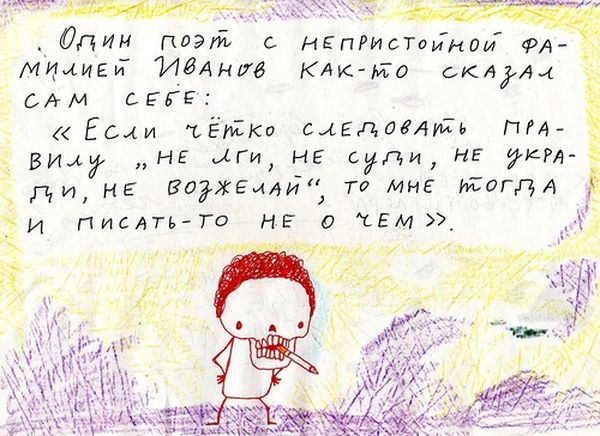 Один поэт с непристойной фа-
милией Иванов как-то сказал
сам себе:
« Если чётко следовать пра-
вилу „не лги, не суди, не укра-
ди, не возжелай“, то мне тогда
и писать-то не о чем».